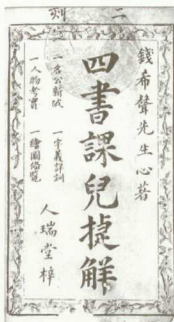 二刻
錢希聲先生心著
四書課兒捷解
一名公新 一字義詳訓
一人物考實 一繪圖備覽
人瑞堂梓